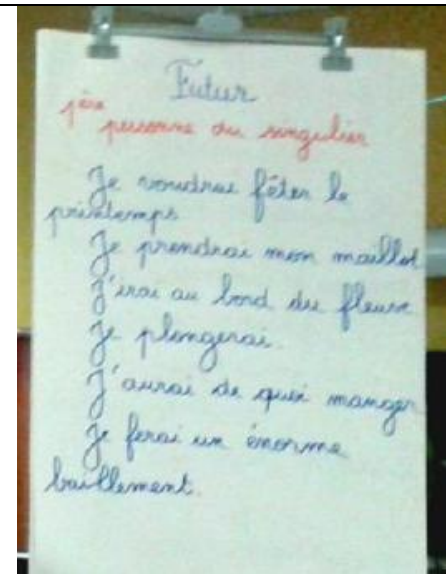 Futur
1ère
personne du singulier
Je voudrai fêter le
printemps
Je prendrai mon maillot
J'irai au bord du fleuve
Je plongerai.
J'aurai de quoi manger
Je ferai un énorme
baillement.